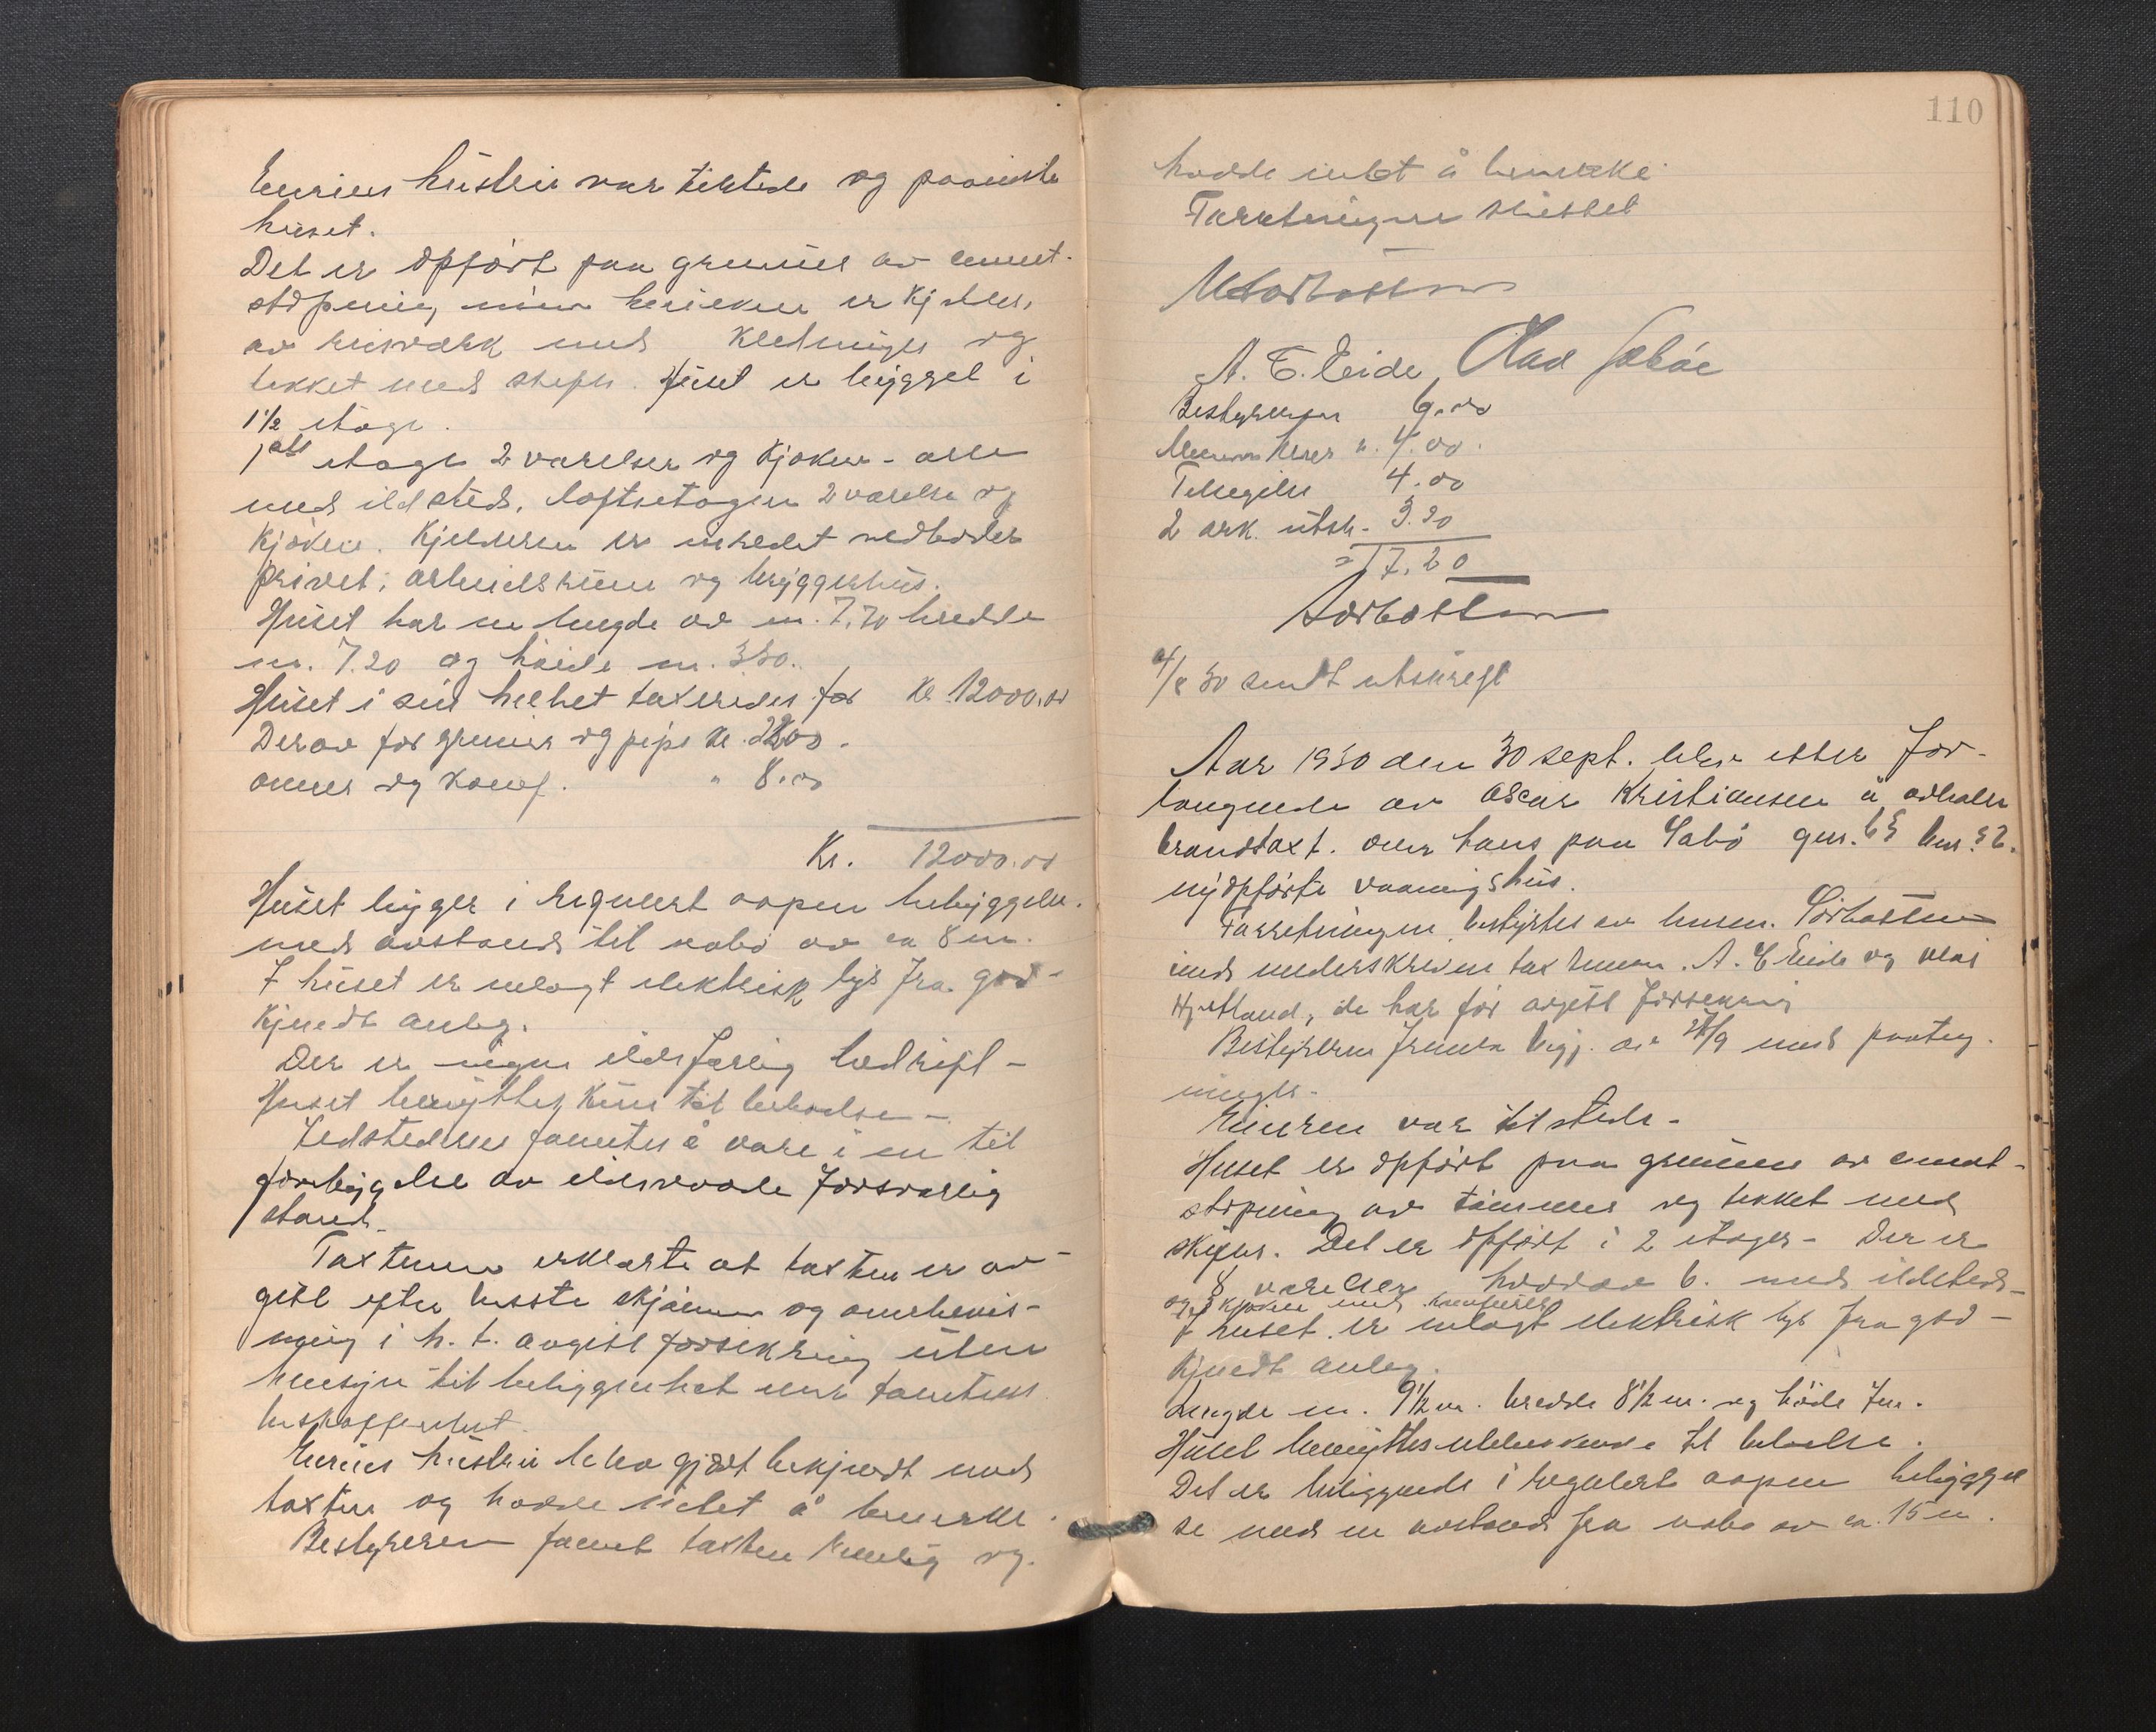 Eierens hustru var tilstede og paaviste
huset.
Det er opført paa grunnur av cement-
støpning, under er kjeller,
av med Kledninger og
tekket med skifer. Huset er bygget i
1 1/2 etage.
1ste etage 2 værelser og Kjøken - alle
med ildsted. Loftsetagen 2 værelse og
Kjøken. Kjelderen er inredet vedboder
privet, arbeidsrum og bryggerhus.
Huset har en lengde av m. 7.70 bredde
m. 7.20 og høide m. 3.50.
Huset i sin helhet taxeredes for Kr 12000.00
Derav for grunmur og pipe Kr. 2200.
ovner og Komf. " 8.00
Kr. 12000.00
Huset ligger i regulert aapen bebyggelse.
med avstand til nabo av ca 8 m.
I huset er inlagt elektrisk lys fra god-
kjendt anleg.
Der er ingen ildsfarlig bedrift -
Huset benyttes kun til beboelse -
Ildstederne fantes å være i en til
forebyggelse av ildsvaade forsvarlig
stand.
Taxtmenn erklærte at taxten er av-
gitt efter beste skjønn og overbevis-
ning i h. t. avgitt forsikring uten
hensyn til beliggenhet eller tomtens
beskaffenhet.
Eierens hustru blev gjort bekjendt med
taxten og hadde intet å bemerke.
Bestyreren fannt taxten rimelig og
110
hadde intet å bemerke
Forretningen sluttet
A. E. Eide, Olav Sæbøe
Bestyreren 6.00
Mennene 4.00.
4.00
2 ark. utsk. 3.20
= 17.20
Sørbotten
4/8 30 sendt utskrift
Aar 1930 den 30 sept. blev etter for-
langende av Oscar Kristiansen å avholde
brandtaxt. over hans paa Sæbø gnr. bnr.
nyopførte vaaningshus.
Forretningen bestyrtes av lensm. Sørbotten
med underskrevne taxtmenn. A. E Eide og Olai
Hjetland, de har før avgitt forsikring
Bestyreren fremla begj. av 28/9 med paateg-
ninger.
Eieren var tilstede.
Huset er opført paa grunnur av cement-
støpning av tømmer og tekket med
skifer. Det er opført i 2 etager - Der er
8 værelser hvorav 6. med ildsted -
og 2 kjøken med komfurer
I huset er inlagt elektrisk lys fra god-
kjendt anleg.
Lengde m. 9 1/2 m. bredde 8 1/2 m. og høide 7 m.
Huset benyttes utelukkende til beboelse.
Det er beliggende i regulert aapen bebyggel
se med en avstand fra nabo av ca. 15 m.